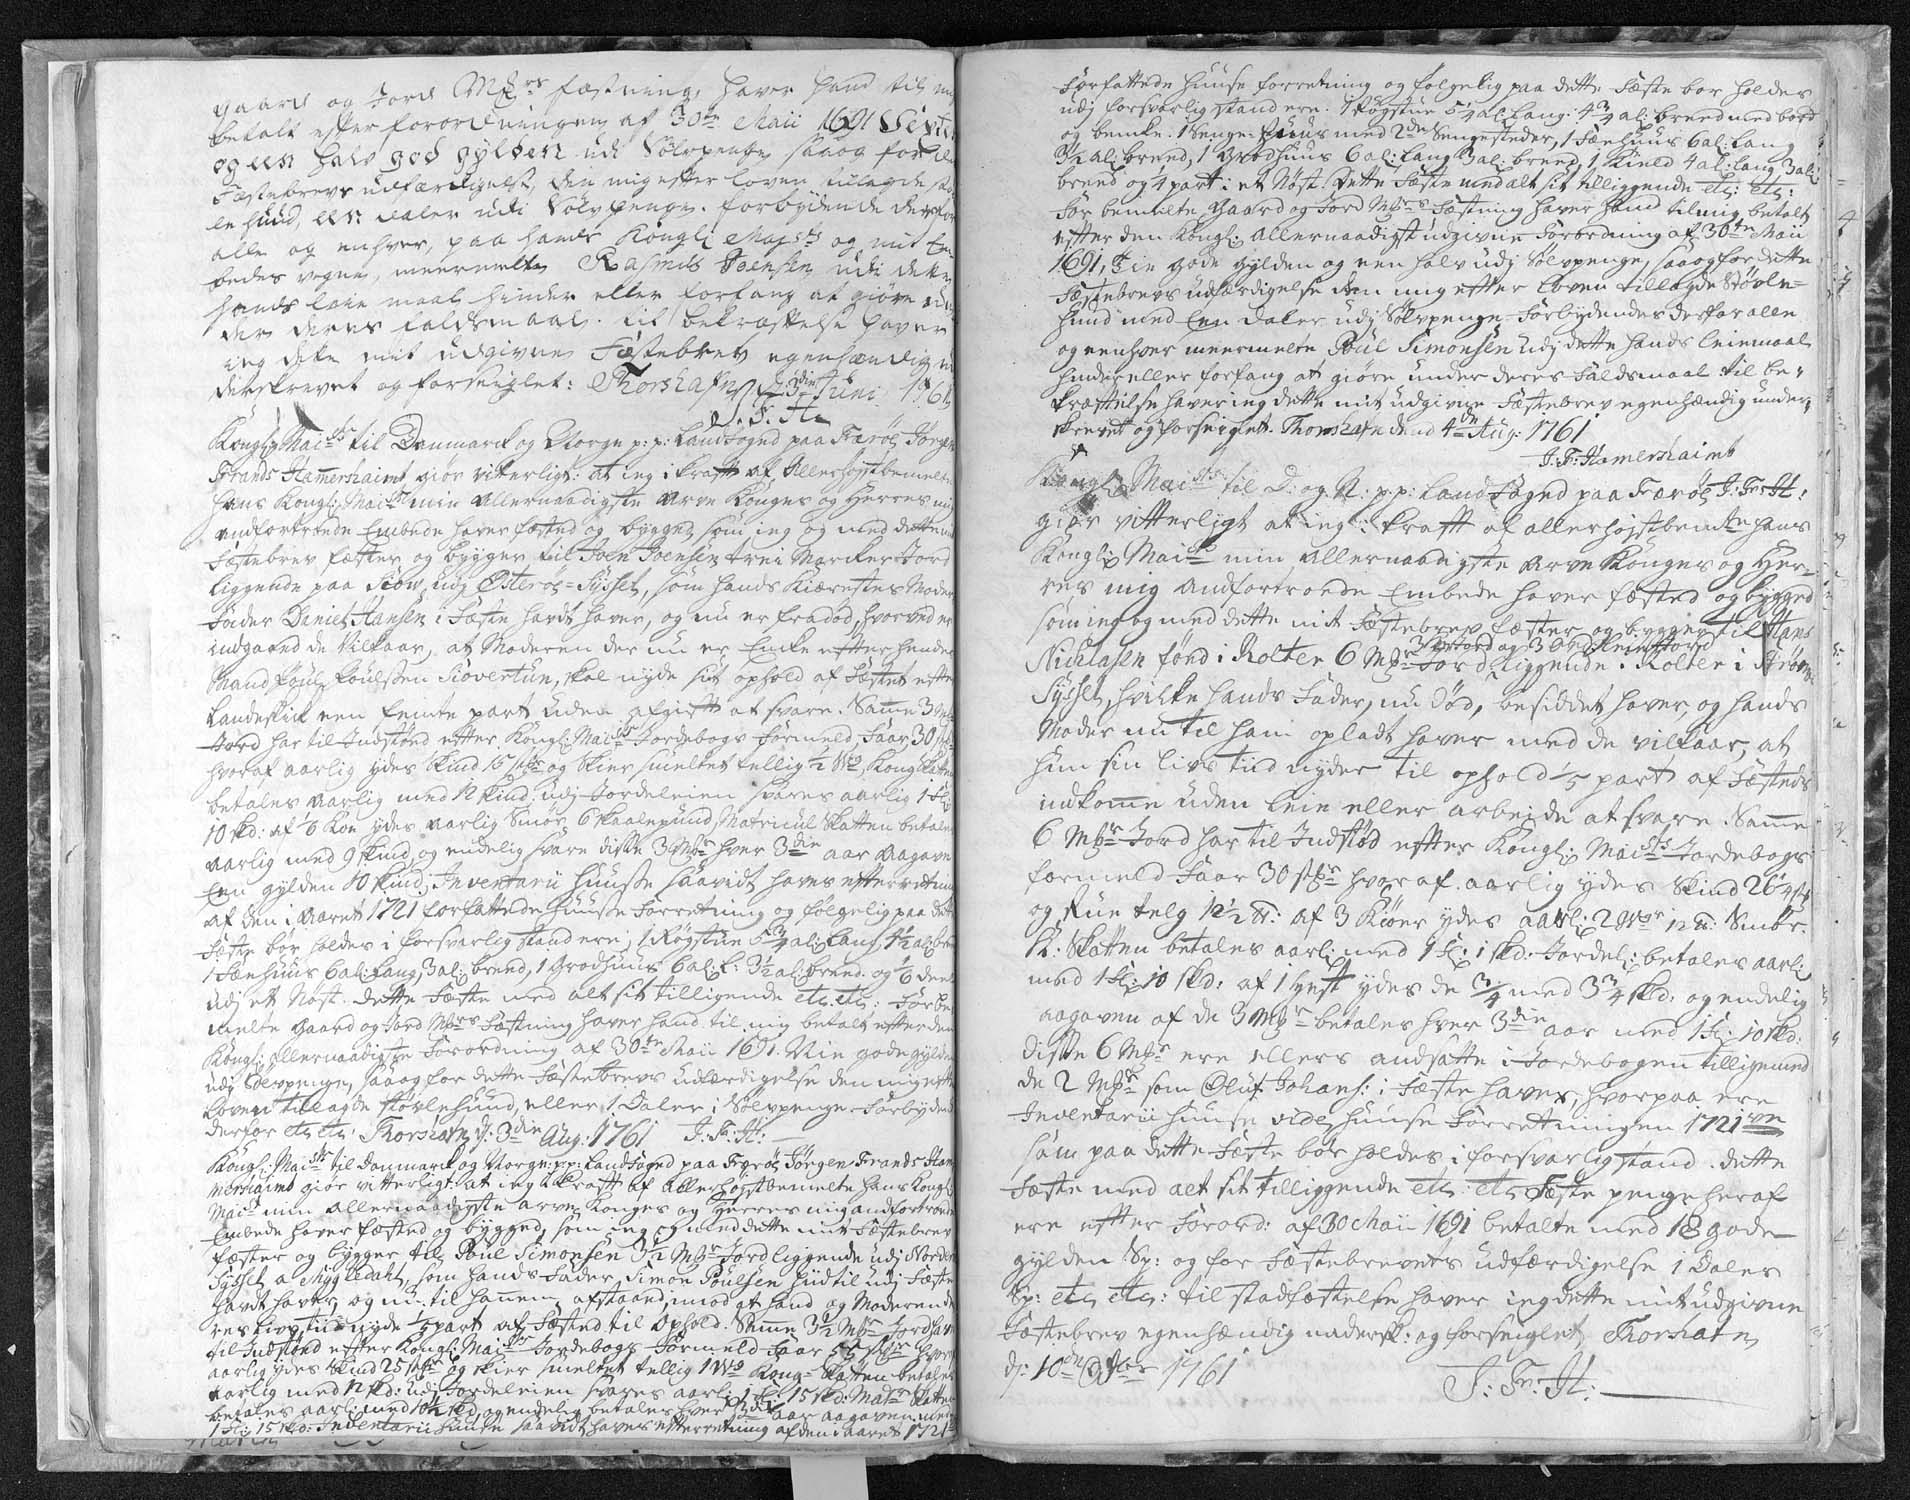 gaard og Jord M&rs fæstning, haver hand til mig
betalt efter forordningen af 30te Maii 1691
og een halv god gylden udi Sølvpenge saa og for
Fæstebrevs udfærdigelse, den mig efter loven tillagde
le hund, een daler udi Sølvpenge. forbydende derfor
alle og enhver, paa hands Kongl: Mayts og mit Em
bedes vegne, meermelte Rasmus Joensen udi dette
hands leie maal hinder eller forfang at giøre un
der deres faldsmaal. til bekræftelse haver
ieg dette mit udgivne Fæstebrev egenhændig un
derskrevet og forseiglet: Thorshafn Juni 1761
J. F. H.
Kongl: Maits til Danmarck og Norge p: p: Landfoged paa Færøe Jørgen
Frands Hammershaimb giør vitterligt: at ieg i kraft af Allerhøjstbemelte
Hans Kongl: Maits min allernaadigste Arve Konges og Herres mig
andfortroede Embede haver fæsted og bygged, som ieg og med dette mit
Fæstebrev fæster og bygger til Joen Joensen trei Marcker Jord
liggende paa Siow udj Østerøe-Syssel, som hands Kiærestes Moder
Fader Daniel Hansen i Fæste havdt haver, og nu er fradød, hvorved er
indgaaed de Vilkaar, at Moderen der nu er Encke efter hendes
Mand Poul Poulsen Siovertun, skal nyde sit ophold af Fæstet efter
Landeskick een femte part uden afgift at svare. Samme 3 M&r
Jord har til Indstød efter Kongl: Maits Jordebogs Formeld, Faar 30
hvoraf aarlig ydes Skind 15 st&r og Skier smeltet tellig ½ Wo, Kong Skatten
betales aarlig med 12 skind: udj Jordeleien svares aarlig 1 Fl:
10 skd: af 1/6 Koe ydes aarlig Smør 6 skaalepund, Matricul Skatten betales
aarlig med 9 skind, og endelig svare disse 3 M&r hver 3die aar Aagaven
Een gylden 10 skind; Inventarii Huusse saavidt haves efterretning
af den i Aaret 1721 forfattede Huusse Forretning og følgelig paa dette
Fæste bør holdes i forsvarlig stand ere; 1 Røgstue 6¾ al: lang 4½ al: breed
1 Fæehuus 6 al: lang, 3 al: breed, 1 Grødhuus 6 al: l: 3½ al: breed. og 1/6 deel
udj et Nøst. dette Fæste med alt sit tilliggende etc. etc: For be
melte gaard og Jord M&rs Fæstning haver hand til mig betalt efter den
Kongl: Allernaadigste Forordning af 30te Maii 1691. Nie gode gylden
udj Sølvpenge, saa og for dette Fæstebrevs udfærdigelse den mig efter
Loven tillagde støvlehund, eller 1 Daler i Sølvpenge. Forbydende
derfor etc etc: Thorshafn d: 3die Aug: 1761 J: Fr: H:
Kongl: Maits til Danmarck og Norge: p:p: Landfoged paa Færøe Jørgen Frands Ham
mershaimb giør vitterligt: at ieg i kraft af Allerhøjstbemelte Hans Kongl:
Maits min allernaadigste Arve Konges og Herres mig andfortroede
Embede haver fæsted og bygged, som ieg og med dette mit Fæstebrev
fæster og bygger til Poul Simonsen 3½ M&r Jord liggende udj Norder
Syssel a Myggledahl, som hands Fader, Simon Poulsen hidtil udj Fæste
havdt haver, og nu til hannem afstaaed, imod at hand og Moderen de
res livs tiid nyde 1/5 part af Fæsted til Ophold. Samme 3½ M&r Jord har
til Indstød efter Kongl: Maits Jordebogs Formeld Faar 55 st&r hvoraf
aarlig ydes Skind 25 st&r og skier smeltet tellig 1 Wo Kong-Skatten betales
aarlig med 12 skd: udj Jordeleien svares aarl: 1 Fl: 15 skd: Matr: Skatten
betales aarl: med 10½ skd, og endelig betales hver 3die aar aagaven med
1 Fl: 15 skd: Inventarii Huusse saavidt haves efterretning af den i aaret 1721
forfattede Huuse forretning og følgelig paa dette Fæste bør holdes
udj forsvarlig stand ere. 1 Røgstue 5¼ al: lang. 4¾ al: breed med bord
og bencke. 1 Senge-Huus med 2de Sengesteder, 1 Fæehuus 6 al: lang
3½ al: breed, 1 Grødhuus 6 al: lang 3 al: breed, 1 Kield 4 al: lang 3 al:
breed og 4 part i et Nøst. Dette Fæste med alt sit tilliggende etc: etc:
For bemelte Gaard og Jord M&rs Fæstning haver hand til mig betalt
efter den Kongl: allernaadigst udgivne Forordning af 30te Maii
1691, Tie gode gylden og een halv udj Sølvpenge, saa og for dette
Fæstebrevs udfærdigelse den mig efter Loven tillagde Støvle=
hund med Een daler udj Sølvpenge. Forbydendes derfor alle
og eenhver meermelte Poul Simonsen udj dette hands leiemaal
hinder eller forfang at giøre under deres Faldsmaal. til be=
kræftelse haver ieg dette mit udgivne Fæstebrev egenhændig under=
skrevet og forseiglet. Thorshafn dend 4de Aug: 1761
J: F: Hamershaimb
Kongl: Maits til D: og N: p:p: Landfoged paa Færøe J: Fr: H:
giør vitterligt at ieg i kraft af allerhøjstbemte hans
Kongl: Maits min Allernaadigste Arve Konges og Her=
res mig andfortroede Embede haver fæsted og bygged
som ieg og med dette mit Fæstebrev fæster og bygger til Hans
Nichlasen fød i Kolter 6 M&r Jord liggende i Kolter i Strøm
Syssel, hvilke hands Fader, nu død, besiddet haver, og hands
Moder nu til ham opladt haver med de vilkaar, at
hun sin livs tiid nyder til ophold 1/5 part af Fæsteds
indkomme uden leie eller arbeide at svare. Samme
6 M&r Jord har til Indstød efter Kongl: Maits Jordebogs
formeld Faar 30 st&r hvoraf aarlig ydes Skind 26¼ st&
og Rue telg 12½ ℔: af 3 Kiøer ydes aarl: 2 Woer 12 ℔: Smør.
K: Skatten betales aarl: med 1 Fl: 1 skd: Jordel: betales aarl:
med 1 Fl: 10 skd: af 1 Hest ydes de ¾ med 3¾ skd: og endelig
aagaven af de 3 M&r betales hver 3die aar med 1 Fl: 10 skd:
disse 6 M&r ere ellers andsatte i Jordebogen tilligemed
de 2 M&r som Oluf Johans: i Fæste haver, hvorpaa ere
Inventarii Huuse vide Huuse Forretningen 1721
som paa dette Fæste bør holdes i forsvarlig stand. dette
Fæste med alt sit tilliggende etc etc Fæste penge heraf
ere efter Forord: af 30 Maii 1691 betalte med 18 gode
gylden Sp: og for Fæstebrevets udfærdigelse 1 Daler
Sp: etc etc: til stadfæstelse haver ieg dette mit udgivne
Fæstebrev egenhændig undersk: og forseiglet, Thorshafn
d: 10de 1761
J: Fr: H: